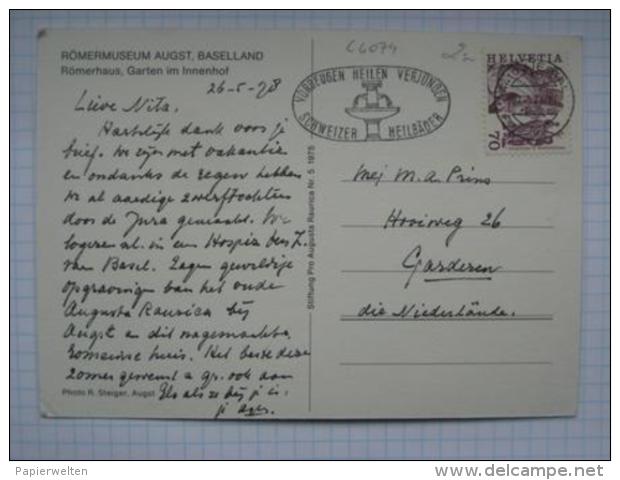 RÖMERMUSEUM AUGST, BASELLAND
Römerhaus, Garten im Innenhof
26-5-78
Lieve Nita,
Hartelijk dank voor je
brief. We zijn met vakantie
en ondanks de regen hebben
we al aardige zwerftochten
door de Jura gemaakt. We
logeren al. in een Hospiz ben Z.
van Basel. Zagen geweldige
opgravingen van het oude
Augusta Raurica bij
Augst en dit nagemaakte
Romeinse huis. Het beste deze
zomer gewenst & gr. ook aan
Els als ze bij je is.
Photo R. Steiger, Augst
Stiftung Pro Augusta Raurica Nr. 5 1975
C6074
2.-
VORBEUGEN HEILEN VERJÜNGEN
SCHWEIZER HEILBÄDER
HELVETIA
70
Mej M. A. Prins
Hooiweg 26
Garderen
die Niederlände.
Papierwelten
delcampe.net